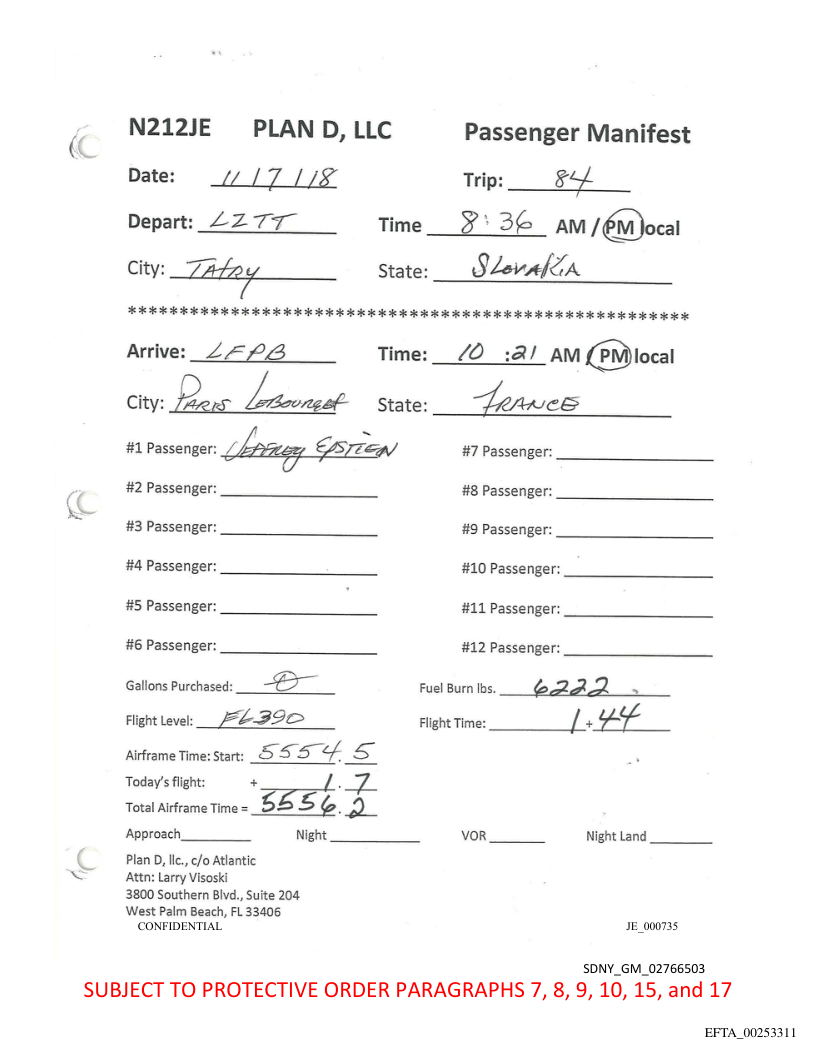 N212JE PLAN D, LLC Passenger Manifest
Date: 11/7/18 Trip: 84
Depart: LZTT Time 8:36 AM / PM local
City: TATRY State: SLOVAKIA
******************************************************
Arrive: LFPB Time: 10:21 AM / PM local
City: PARIS LEBOURGET State: FRANCE
#1 Passenger: JEFFREY EPSTIEN #7 Passenger:
#2 Passenger: #8 Passenger:
#3 Passenger: #9 Passenger:
#4 Passenger: #10 Passenger:
#5 Passenger: #11 Passenger:
#6 Passenger: #12 Passenger:
Gallons Purchased: Fuel Burn lbs. 6222
Flight Level: FL390 Flight Time: 1+44
Airframe Time: Start: 5554.5
Today's flight: + 1.7
Total Airframe Time = 5556.2
Approach Night VOR Night Land
Plan D, llc., c/o Atlantic
Attn: Larry Visoski
3800 Southern Blvd., Suite 204
West Palm Beach, FL 33406
CONFIDENTIAL JE_000735
SDNY_GM_02766503
SUBJECT TO PROTECTIVE ORDER PARAGRAPHS 7, 8, 9, 10, 15, and 17
EFTA_00253311